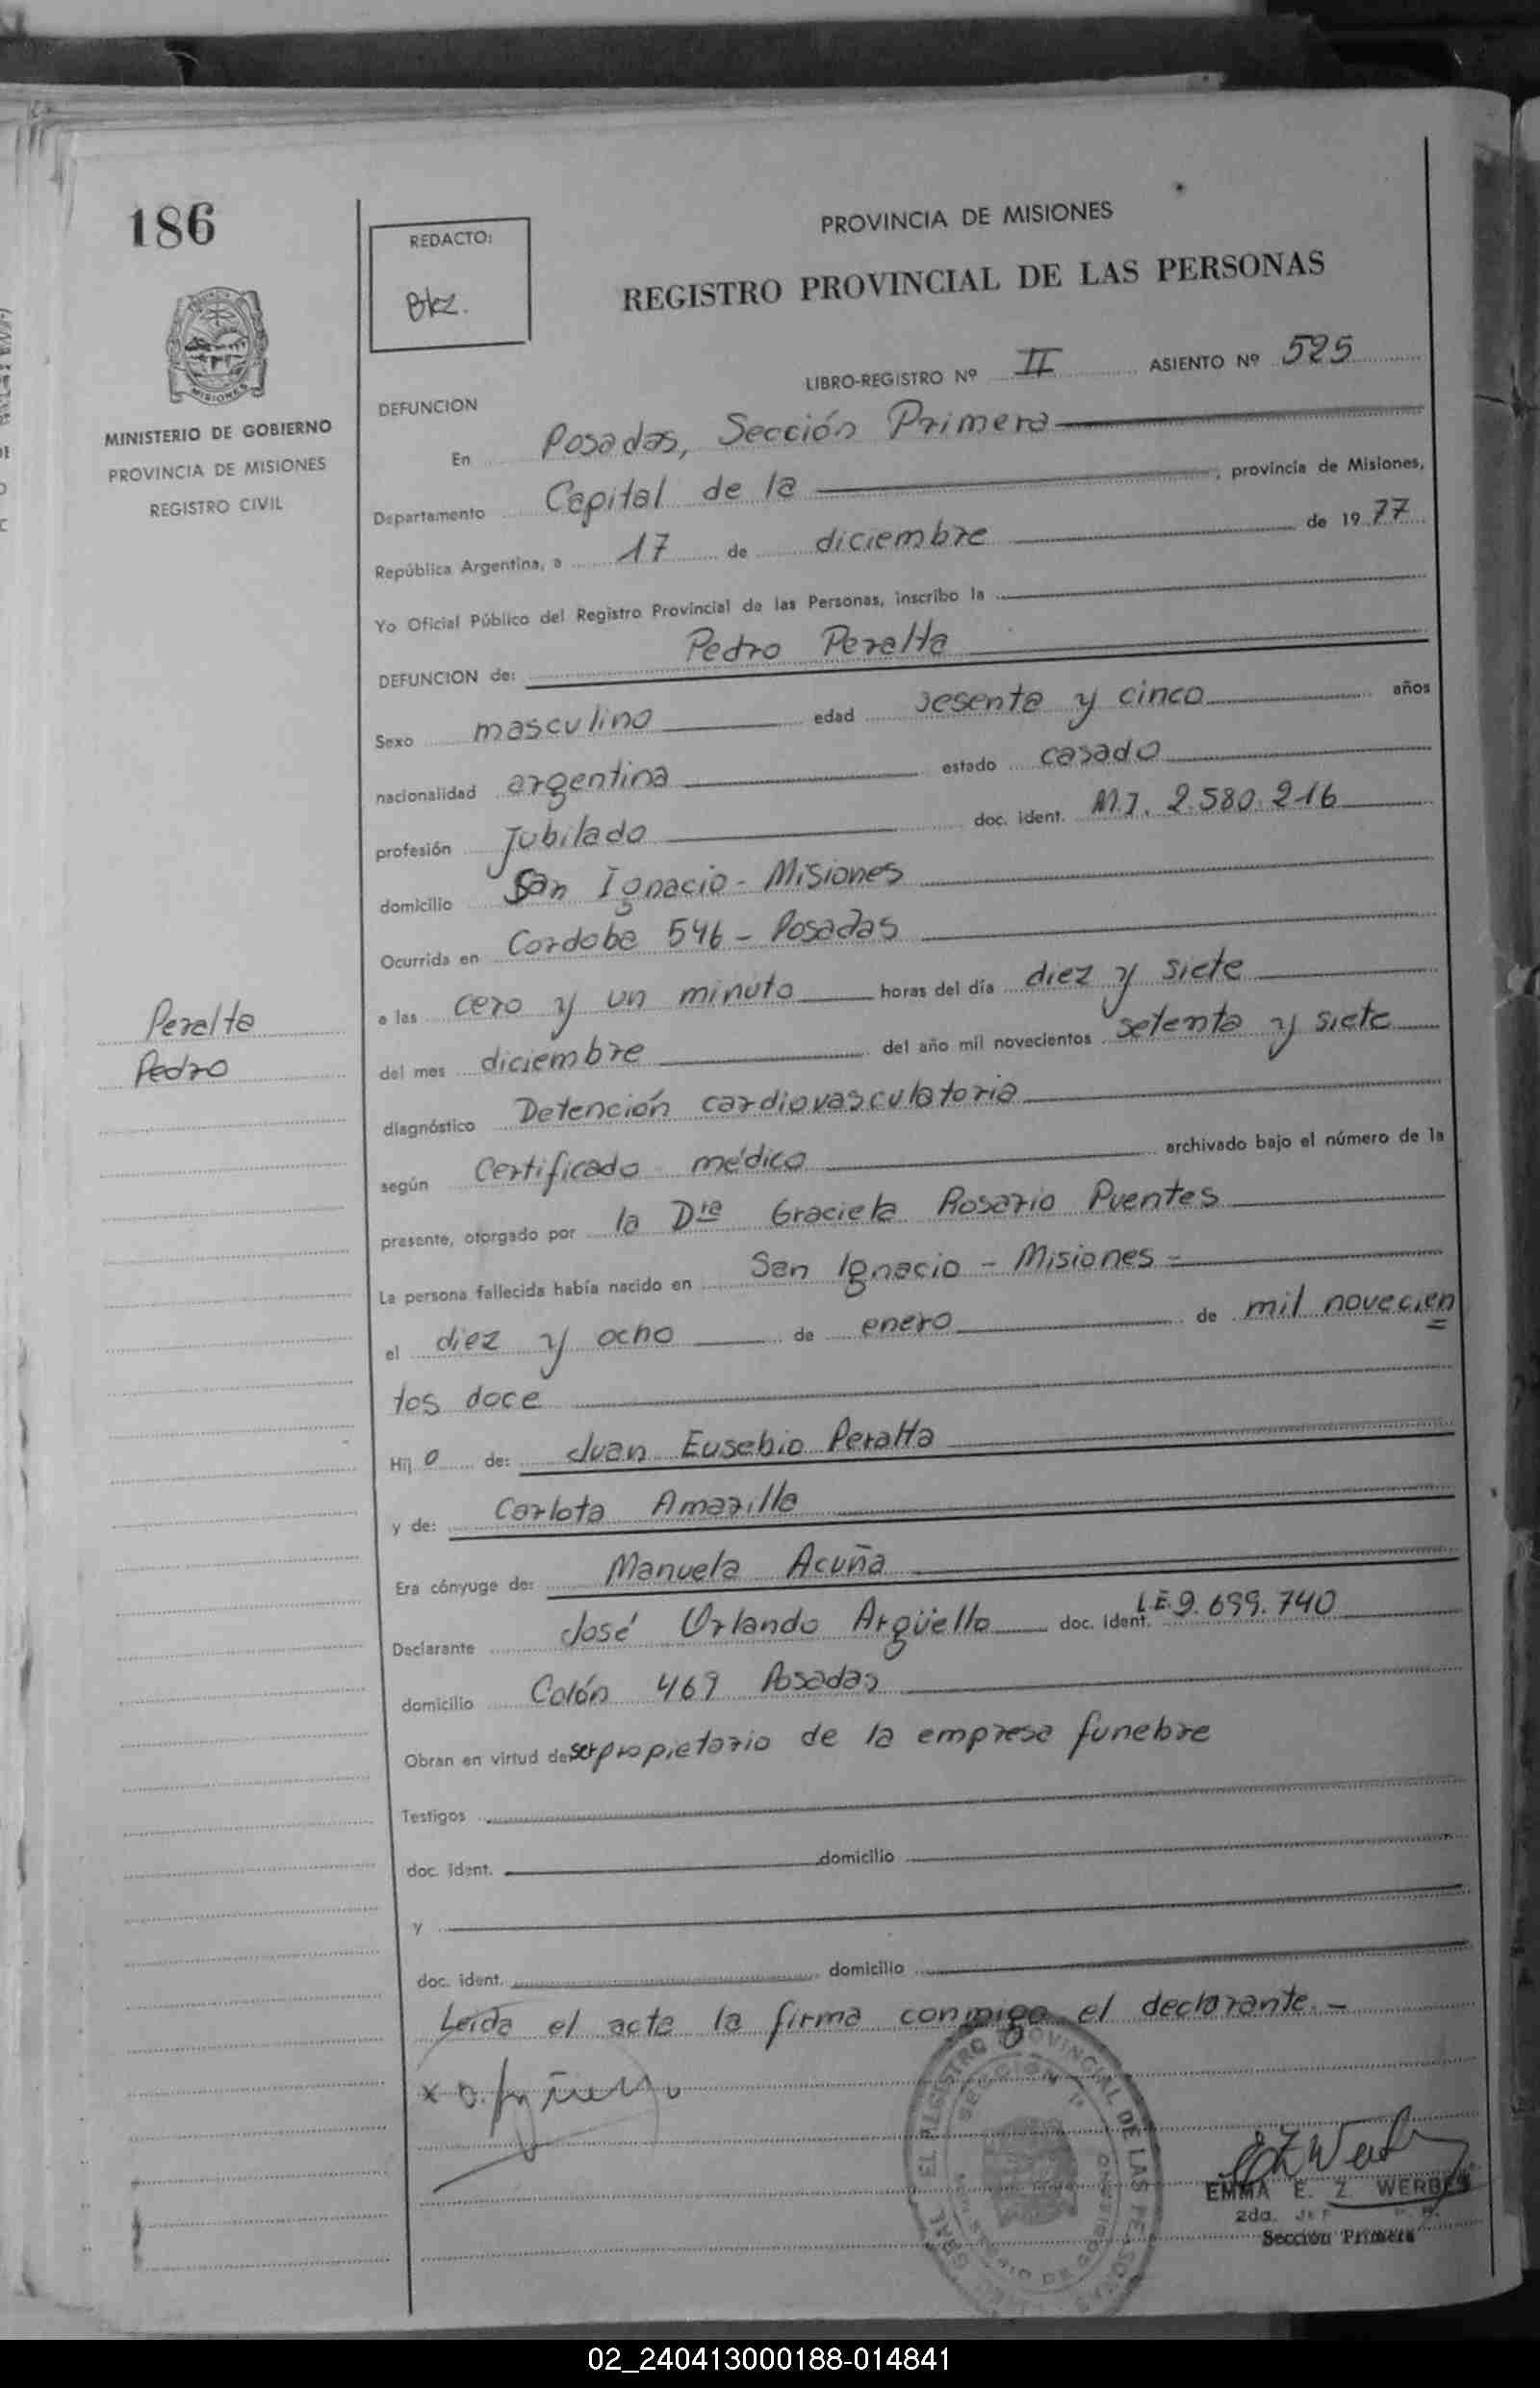 186
REDACTO:
Bkz.
PROVINCIA DE MISIONES
REGISTRO PROVINCIAL DE LAS PERSONAS
MINISTERIO DE GOBIERNO
PROVINCIA DE MISIONES
REGISTRO CIVIL
LIBRO-REGISTRO Nº II ASIENTO Nº 525
DEFUNCION
En Posadas, Sección Primera
Departamento Capital de la , provincia de Misiones,
República Argentina, a 17 de diciembre de 1977
Yo Oficial Público del Registro Provincial de las Personas, inscribo la
DEFUNCION de: Pedro Peralta
Sexo masculino edad sesenta y cinco años
nacionalidad argentina estado casado
profesión Jubilado doc. ident. M.I. 2.580.216
domicilio San Ignacio - Misiones
Ocurrida en Cordoba 546 - Posadas
a las cero y un minuto horas del día diez y siete
Peralta
Pedro
del mes diciembre del año mil novecientos setenta y siete
diagnóstico Detención cardiovasculatoria
según Certificado médico archivado bajo el número de la
presente, otorgado por la Dra Graciela Rosario Puentes
La persona fallecida había nacido en San Ignacio - Misiones =
el diez y ocho de enero de mil novecien
tos doce
Hij o de: Juan Eusebio Peralta
y de: Carlota Amarilla
Era cónyuge de: Manuela Acuña
Declarante José Orlando Argüello doc. ident. L.E. 9.699.740
domicilio Colón 469 Posadas
Obran en virtud de ser propietario de la empresa funebre
Testigos
doc. ident. domicilio
y
doc. ident. domicilio
Leída el acta la firma conmigo el declarante. -
EL REGISTRO PROVINCIAL DE LAS PERSONAS
SECCION 1ª
EMMA E. Z. WERBES
2da.
Sección Primera
02_240413000188-014841